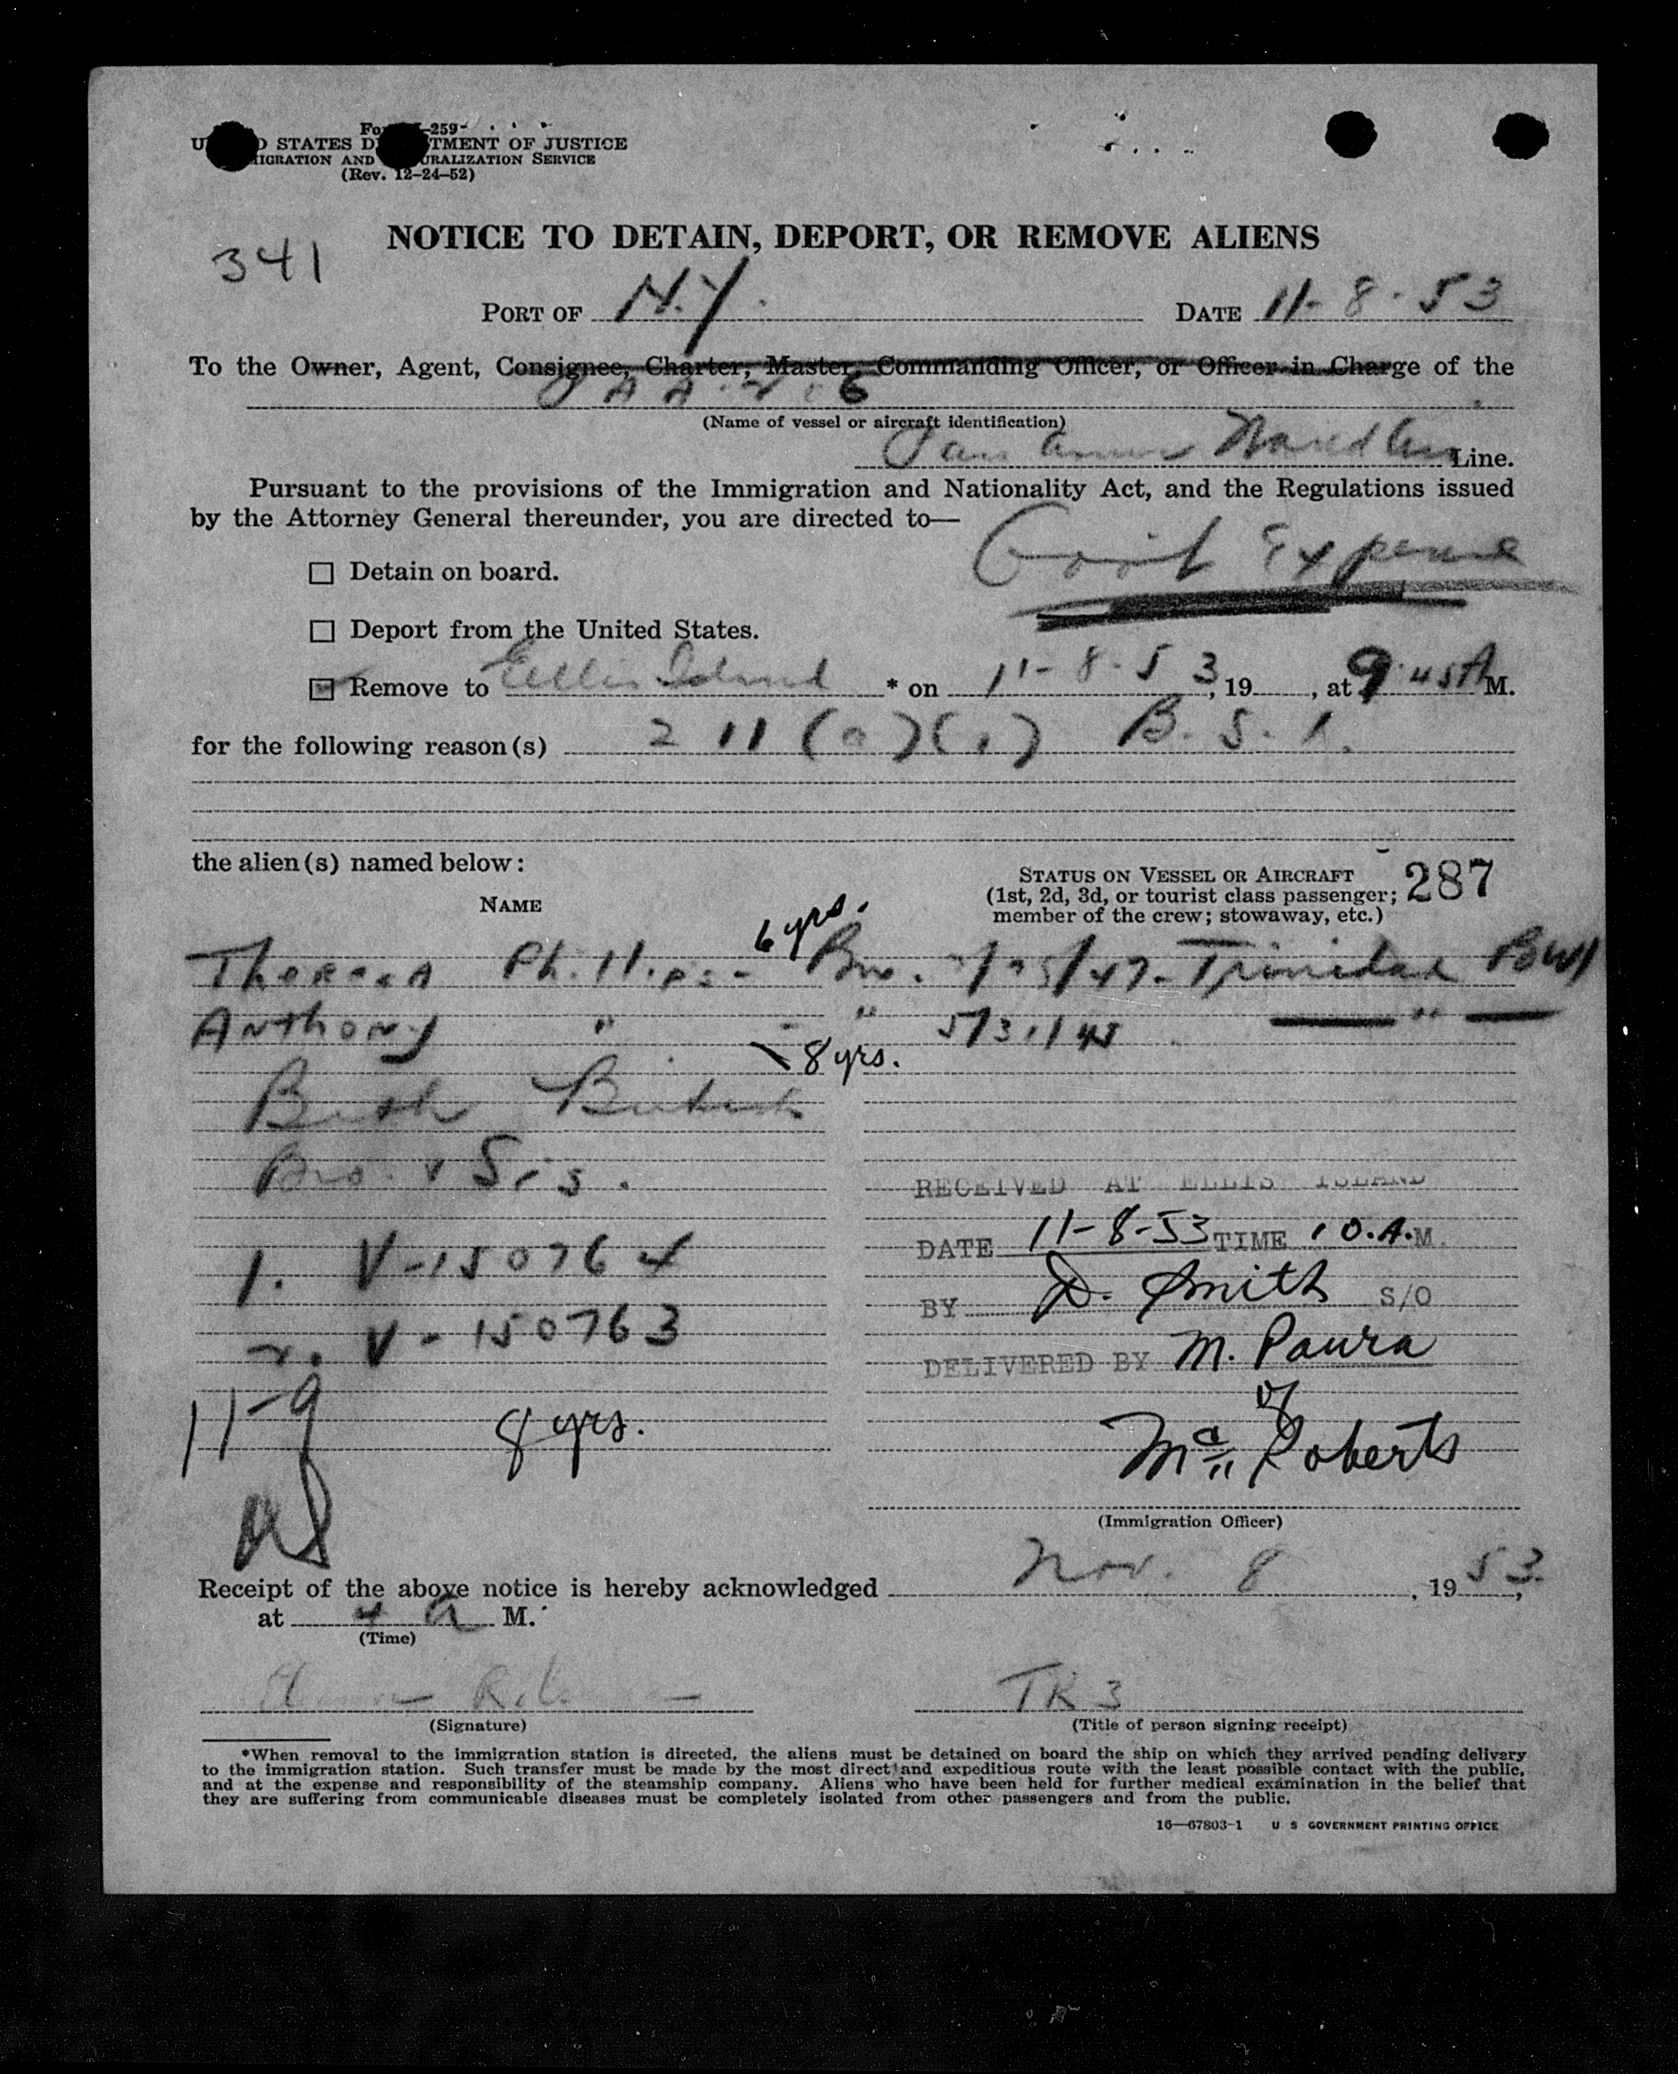 Form I-259
UNITED STATES DEPARTMENT OF JUSTICE
IMMIGRATION AND NATURALIZATION SERVICE
(Rev. 12-24-52)
NOTICE TO DETAIN, DEPORT, OR REMOVE ALIENS
341
PORT OF N.Y. DATE 11-8-53
To the Owner, Agent, Consignee, Charter, Master, Commanding Officer, or Officer in Charge of the
PAA 206
(Name of vessel or aircraft identification)
Pan Amer World Air Line.
Pursuant to the provisions of the Immigration and Nationality Act, and the Regulations issued
by the Attorney General thereunder, you are directed to—
Gov't Expense
Detain on board.
Deport from the United States.
Remove to Ellis Island * on 11-8-53, 19 , at 9:45 A M.
for the following reason(s) 211(a)(1) B.S.I.
the alien(s) named below:
287
STATUS ON VESSEL OR AIRCRAFT
(1st, 2d, 3d, or tourist class passenger;
member of the crew; stowaway, etc.)
NAME
6 yrs.
Theresa Phillips - Bn. /47 - Trinidad BWI
Anthony " - " 5/31/45 "
8 yrs.
Both British
Bro. & Sis.
RECEIVED AT ELLIS ISLAND
DATE 11-8-53 TIME 10.A.M.
1. V-150764
BY D. Smith S/O
2. V-150763
DELIVERED BY M. Paura
11-9 8 yrs.
of
Mc Roberts
(Immigration Officer)
Receipt of the above notice is hereby acknowledged Nov. 8, 1953,
at 4 A M.
(Time)
TR 3
(Signature) (Title of person signing receipt)
*When removal to the immigration station is directed, the aliens must be detained on board the ship on which they arrived pending delivery
to the immigration station. Such transfer must be made by the most direct and expeditious route with the least possible contact with the public,
and at the expense and responsibility of the steamship company. Aliens who have been held for further medical examination in the belief that
they are suffering from communicable diseases must be completely isolated from other passengers and from the public.
16—67803-1 U S GOVERNMENT PRINTING OFFICE